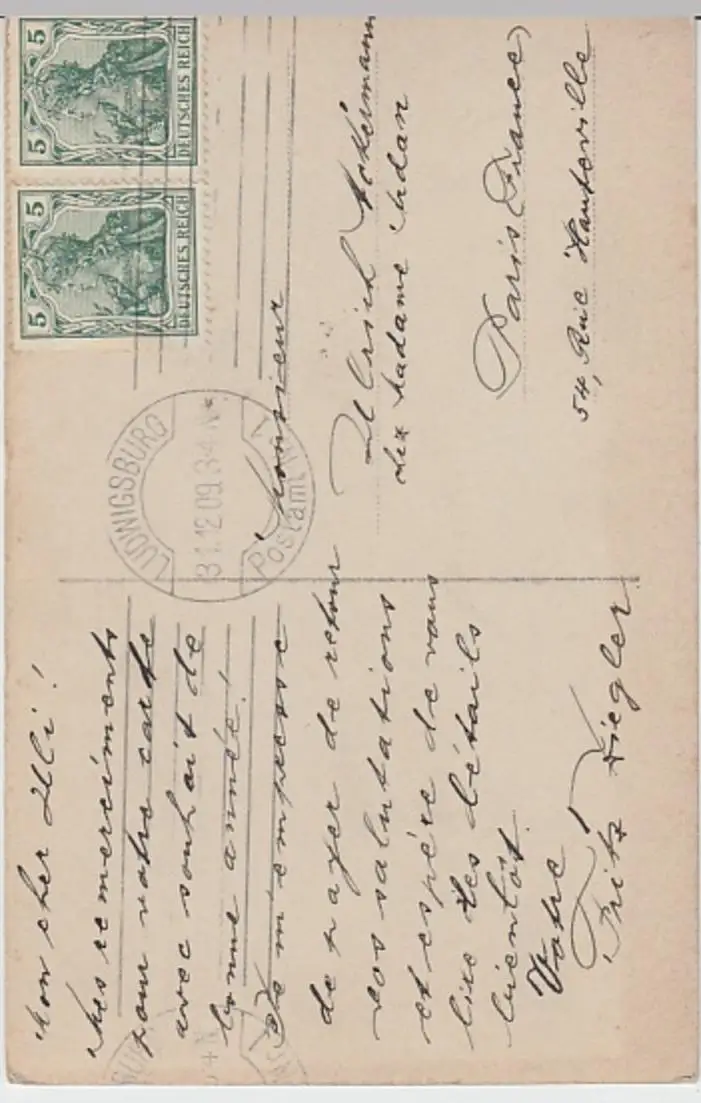 Mon cher Ulli!
Mes remerciments
pour votre carte
avec souhait de
bonne année!
Je m'empresse
de payer de retour
vos salutations
et espère de vous
lire des détails
bientôt.
Votre
Fritz Ziegler
5 5
DEUTSCHES REICH
5 5
DEUTSCHES REICH
LUDWIGSBURG
31.12.09.3-4 N
Postamt № 1
Monsieur
Ulrich Ackermann
chez Madame
Paris (France)
54, Rue Hauteville